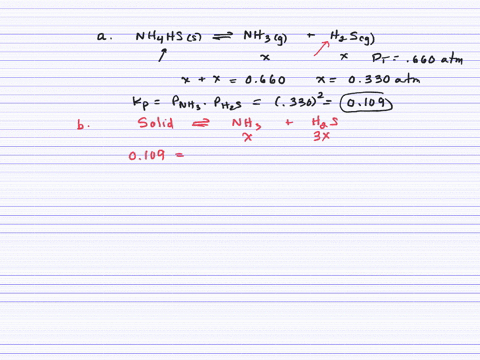 a. NH4HS(s) ⇌ NH3(g) + H2S(g)
x x PT = .660 atm
x + x = 0.660 x = 0.330 atm
Kp = PNH3 · PH2S = (.330)² = 0.109
b. Solid ⇌ NH3 + H2S
x 3x
0.109 =